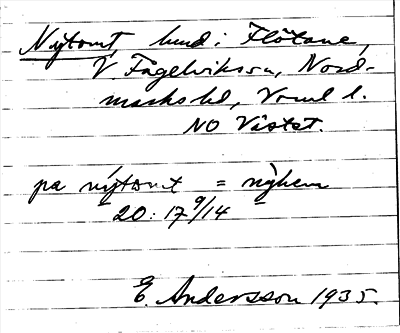 Nytomt, hmd i Flötane,
V Fågelviksson, Nord-
marks hd, Vrml l.
NO Västet.
pa nýtomt = nỳhem
20: 17 9/14
E. Andersson 1935.